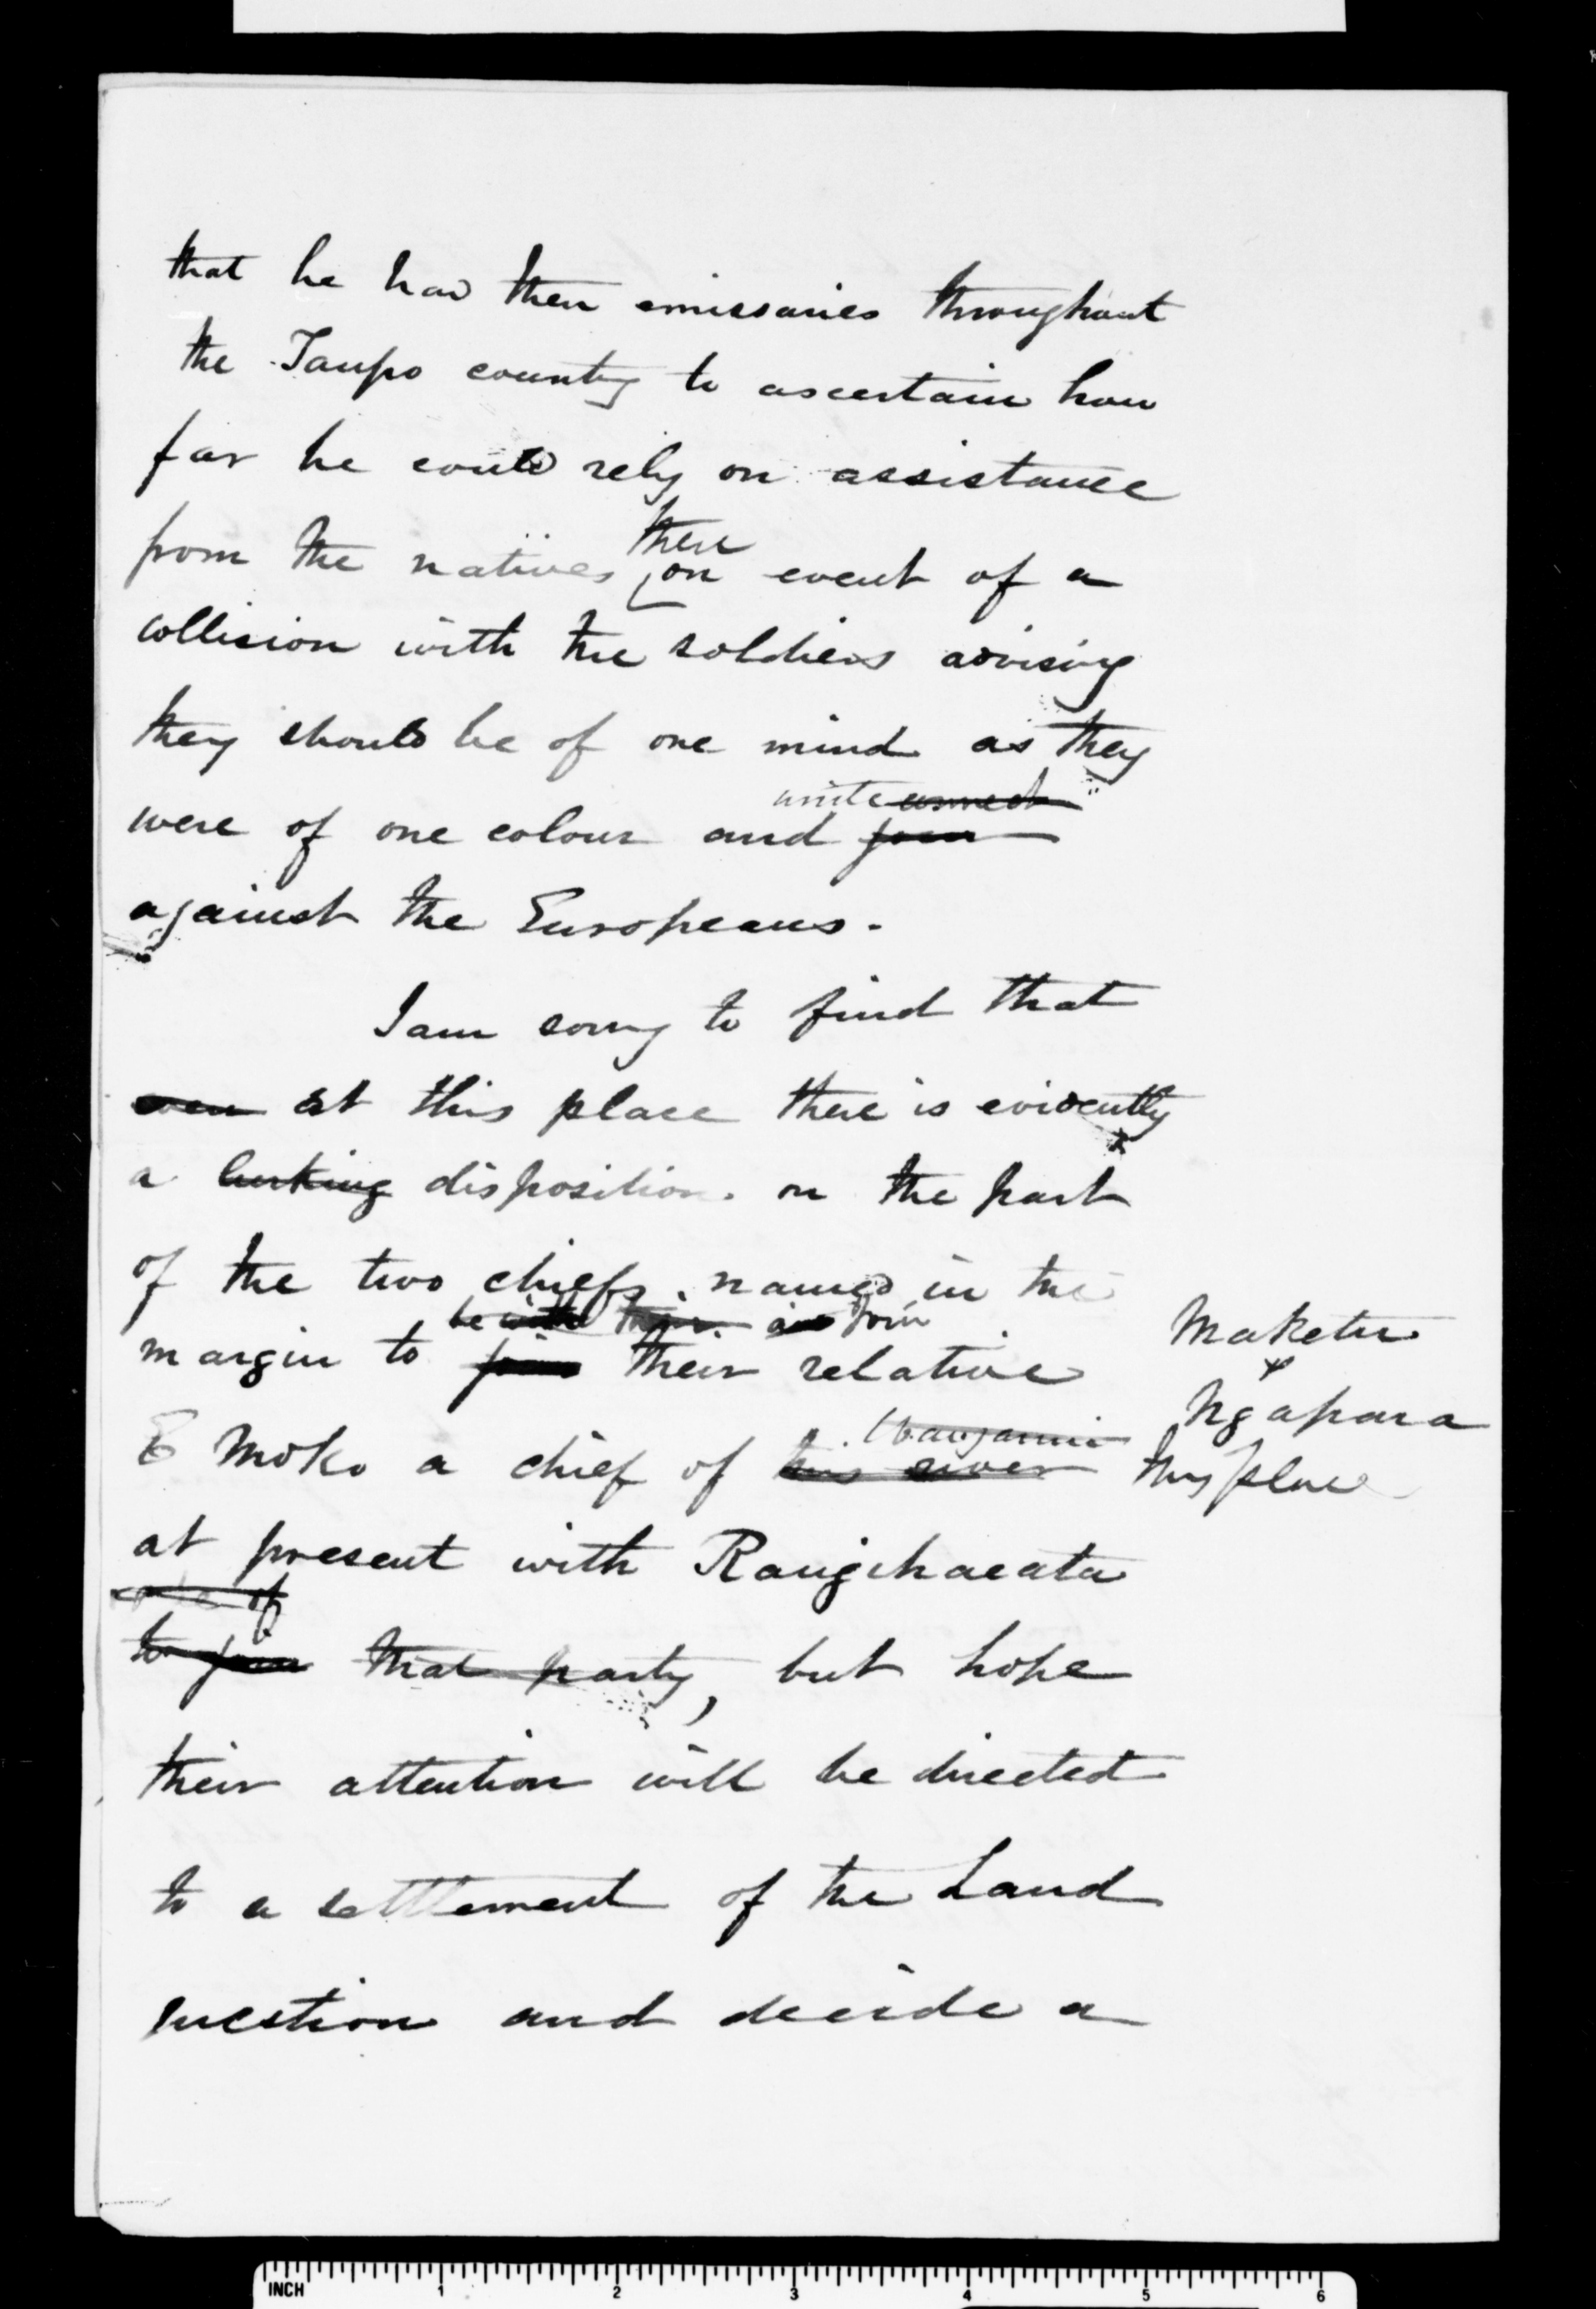 that he had then emissaries throughout
the Taupo country to ascertain how
far he could rely on assistance
there
from the natives on event of a
collision with the soldiers advising
they should be of one mind as they
unite
were of one colour and join
against the Europeans.
I am sorry to find that
even at this place there is evidently
a lurking disposition on the part
of the two chiefs named in the
be with their join
margin to join their relative
Maketu
&
Ngapara
Wanganui
E Moko a chief of this river
this place
at present with Rangihaeata
of
to join that party, but hope
their attention will be directed
to a settlement of the Land
question and decide a
INCH 1 2 3 4 5 6